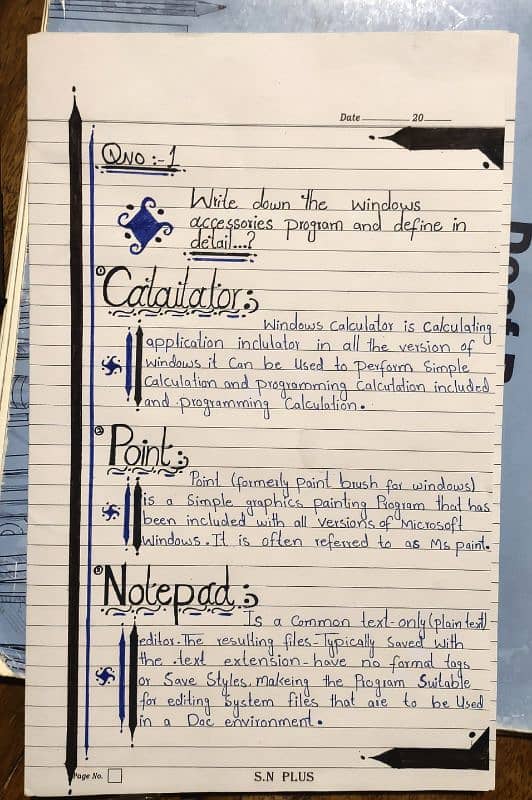 Date 20
QNO :- 1
Write down the windows
accessories program and define in
detail...?
① Calculator:
Windows Calculator is Calculating
application inclulator in all the version of
windows.it Can be Used to perform Simple
Calculation and programming Calculation included
and programming Calculation.
② Point:
Point (formerly paint brush for windows)
is a Simple graphics painting Program that has
been included with all versions of Microsoft
Windows. It is often referred to as Ms paint.
③ Notepad:
Is a Common text-only (plain text)
editor. The resulting files-Typically Saved with
the .text extension-have no format tags
or Save Styles, makeing the Program Suitable
for editing System files that are to be Used
in a Doc environment.
Page No.
S.N PLUS